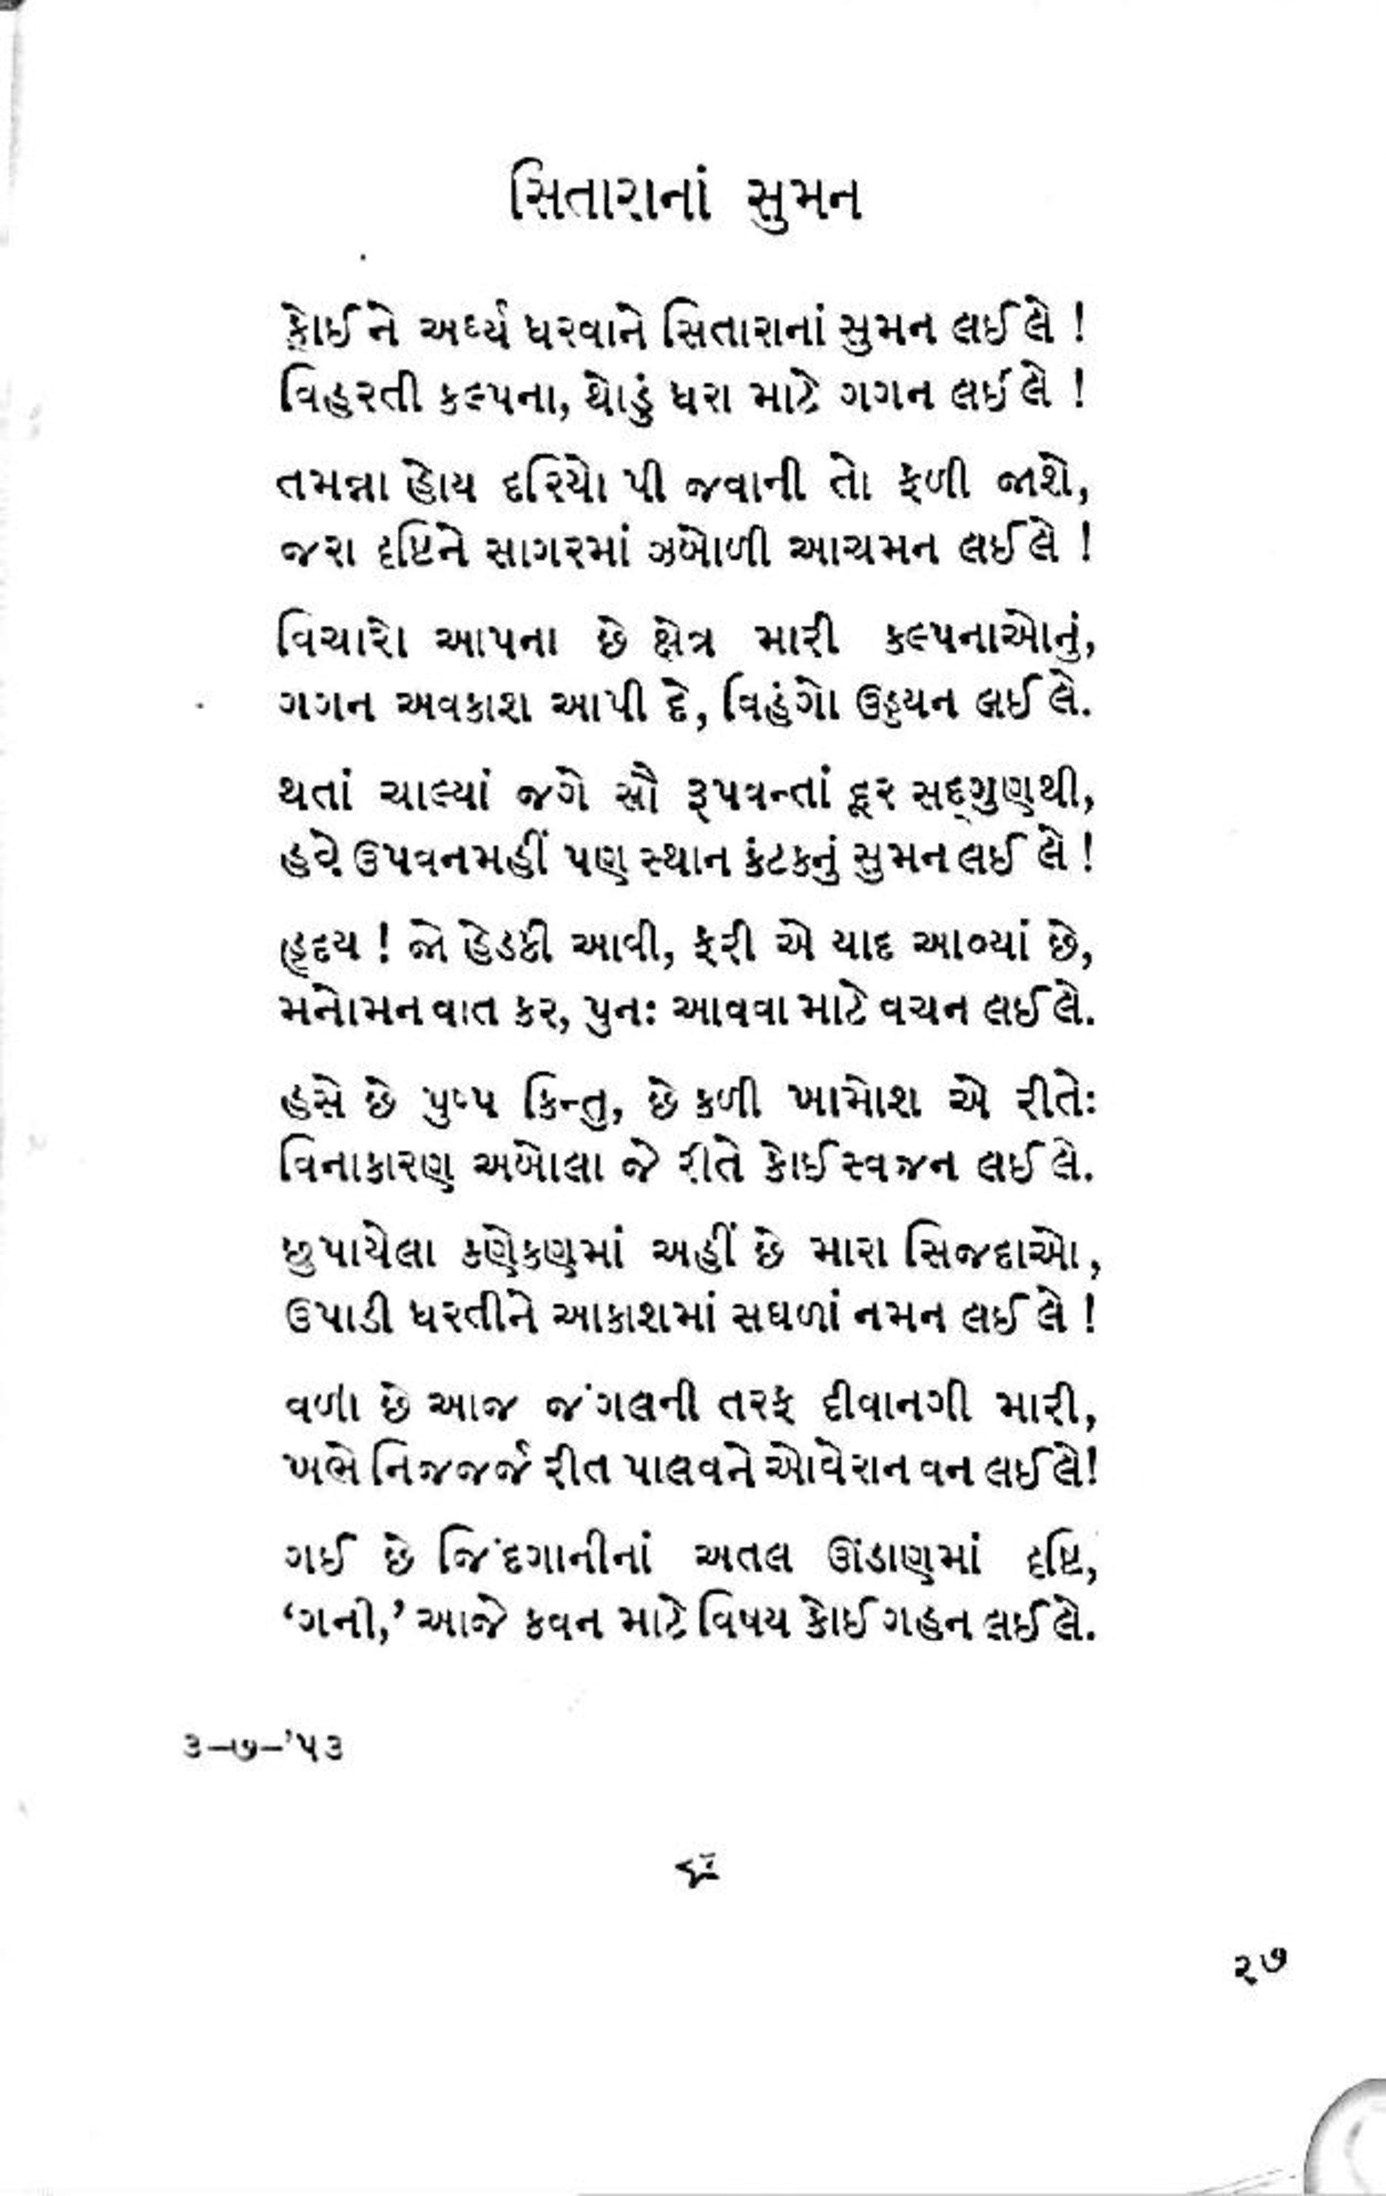 સિતારાનાં સુમન
કોઈને અર્ઘ્ય ધરવાને સિતારાનાં સુમન લઈ લે !
વિહરતી કલ્પના, થોડું ધરા માટે ગગન લઈ લે !
તમન્ના હોય દરિયો પી જવાની તો ફળી જાશે,
જરા દૃષ્ટિને સાગરમાં ઝબોળી આચમન લઈ લે !
વિચારો આપના છે ક્ષેત્ર મારી કલ્પનાઓનું,
ગગન અવકાશ આપી દે, વિહંગો ઉડ્ડયન લઈ લે.
થતાં ચાલ્યાં જગે સૌ રૂપવન્તાં દૂર સદ્ગુણથી,
હવે ઉપવનમહીં પણ સ્થાન કંટકનું સુમન લઈ લે !
હૃદય ! જો હેડકી આવી, ફરી એ યાદ આવ્યાં છે,
મનોમન વાત કર, પુનઃ આવવા માટે વચન લઈ લે.
હસે છે પુષ્પ કિન્તુ, છે કળી ખામોશ એ રીતેઃ
વિનાકારણ અબોલા જે રીતે કોઈ સ્વજન લઈ લે.
છુપાયેલા કણેકણમાં અહીં છે મારા સિજદાઓ,
ઉપાડી ધરતીને આકાશમાં સઘળાં નમન લઈ લે !
વળી છે આજ જંગલની તરફ દીવાનગી મારી,
ખભે નિજ જર્જરીત પાલવને ઓ વેરાન વન લઈ લે!
ગઈ છે જિંદગાનીનાં અતલ ઊંડાણમાં દૃષ્ટિ,
‘ગની,’ આજે કવન માટે વિષય કોઈ ગહન લઈ લે.
૩–૭–’૫૩
૨૭